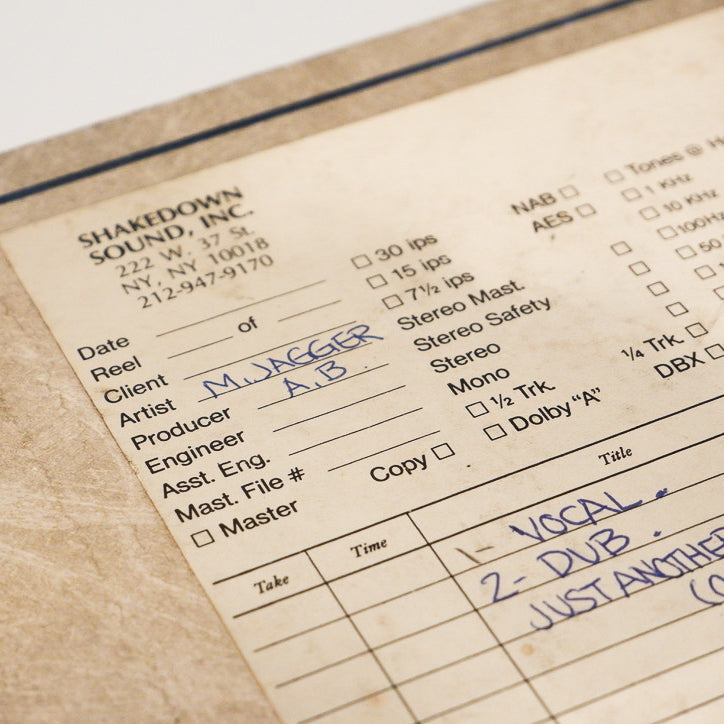 SHAKEDOWN
SOUND, INC.
222 W. 37 St.
NY, NY 10018
212-947-9170
Date
Reel of
Client
Artist M. JAGGER
Producer A.B
Engineer
Asst. Eng.
Mast. File #
Master
Copy
30 ips
15 ips
7½ ips
Stereo Mast.
Stereo Safety
Stereo
Mono
½ Trk.
¼ Trk.
Dolby "A"
DBX
NAB
AES
Tones @
1 KHz
10 KHz
100H
50
Take Time Title
1- VOCAL.
2- DUB.
JUST ANOTHER